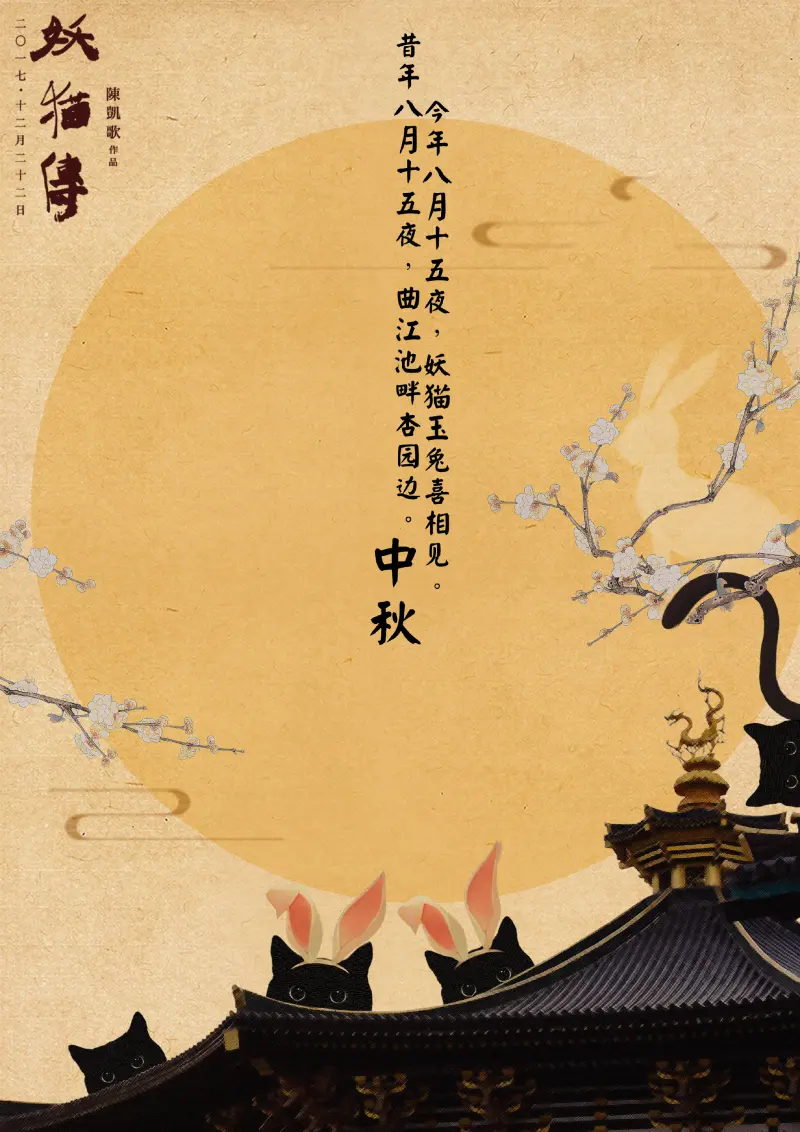 妖猫傳
二〇一七·十二月二十二日
陳凱歌作品
今年八月十五夜，妖猫玉兔喜相见。
昔年八月十五夜，曲江池畔杏园边。
中秋